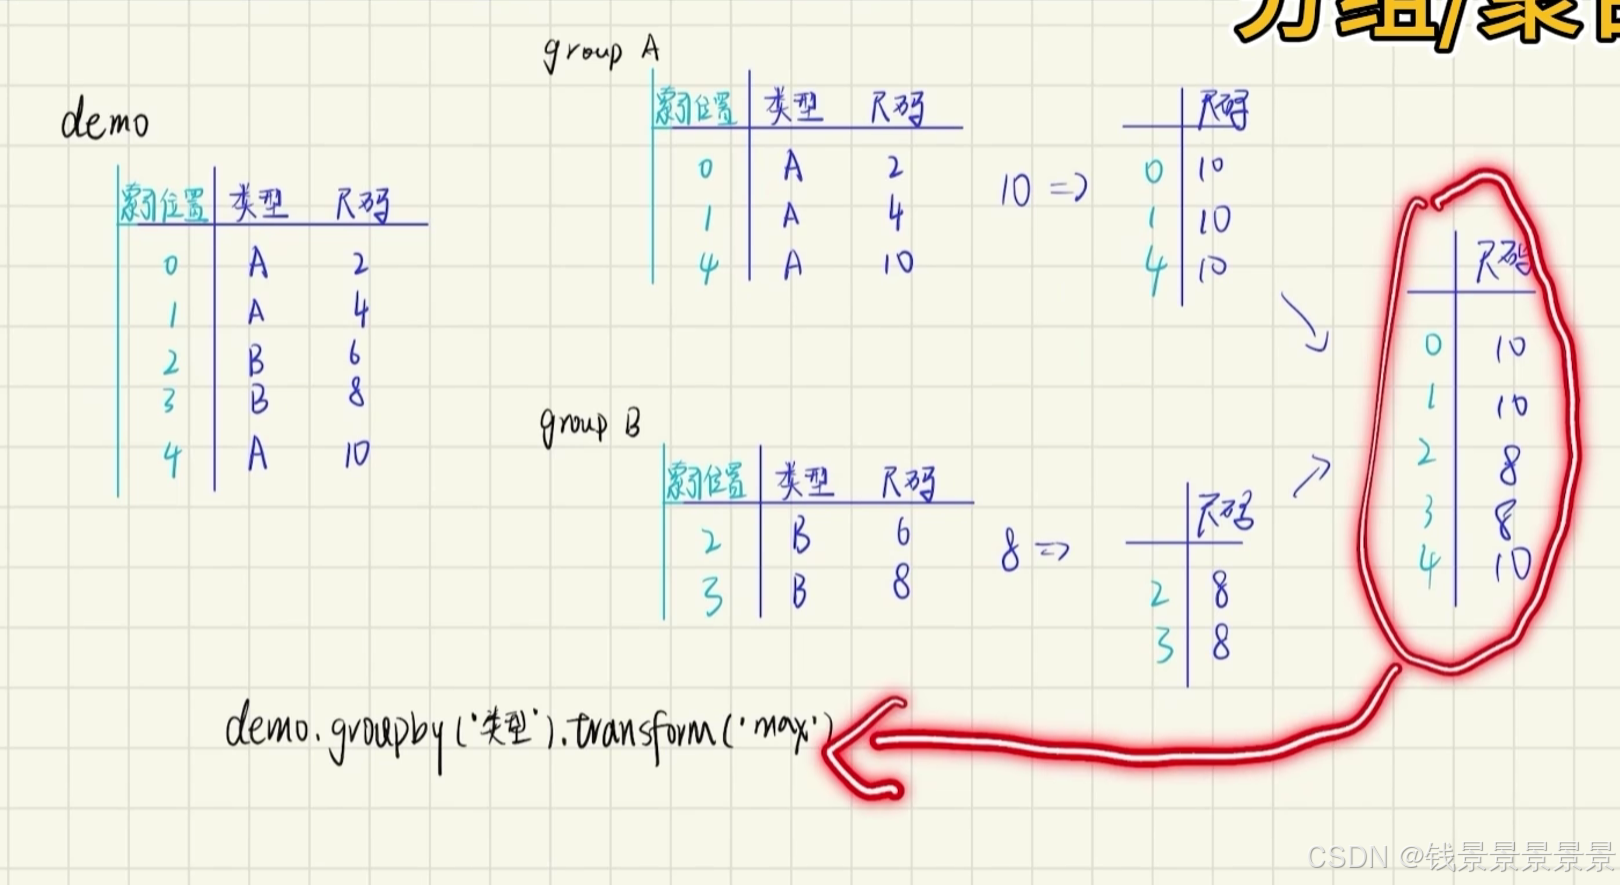 分组/聚合
demo
索引位置 类型 尺码
0 A 2
1 A 4
2 B 6
3 B 8
4 A 10
group A
索引位置 类型 尺码
0 A 2
1 A 4
4 A 10
10 =>
尺码
0 10
1 10
4 10
group B
索引位置 类型 尺码
2 B 6
3 B 8
8 =>
尺码
2 8
3 8
尺码
0 10
1 10
2 8
3 8
4 10
demo.groupby('类型').transform('max')
CSDN @钱景景景景景